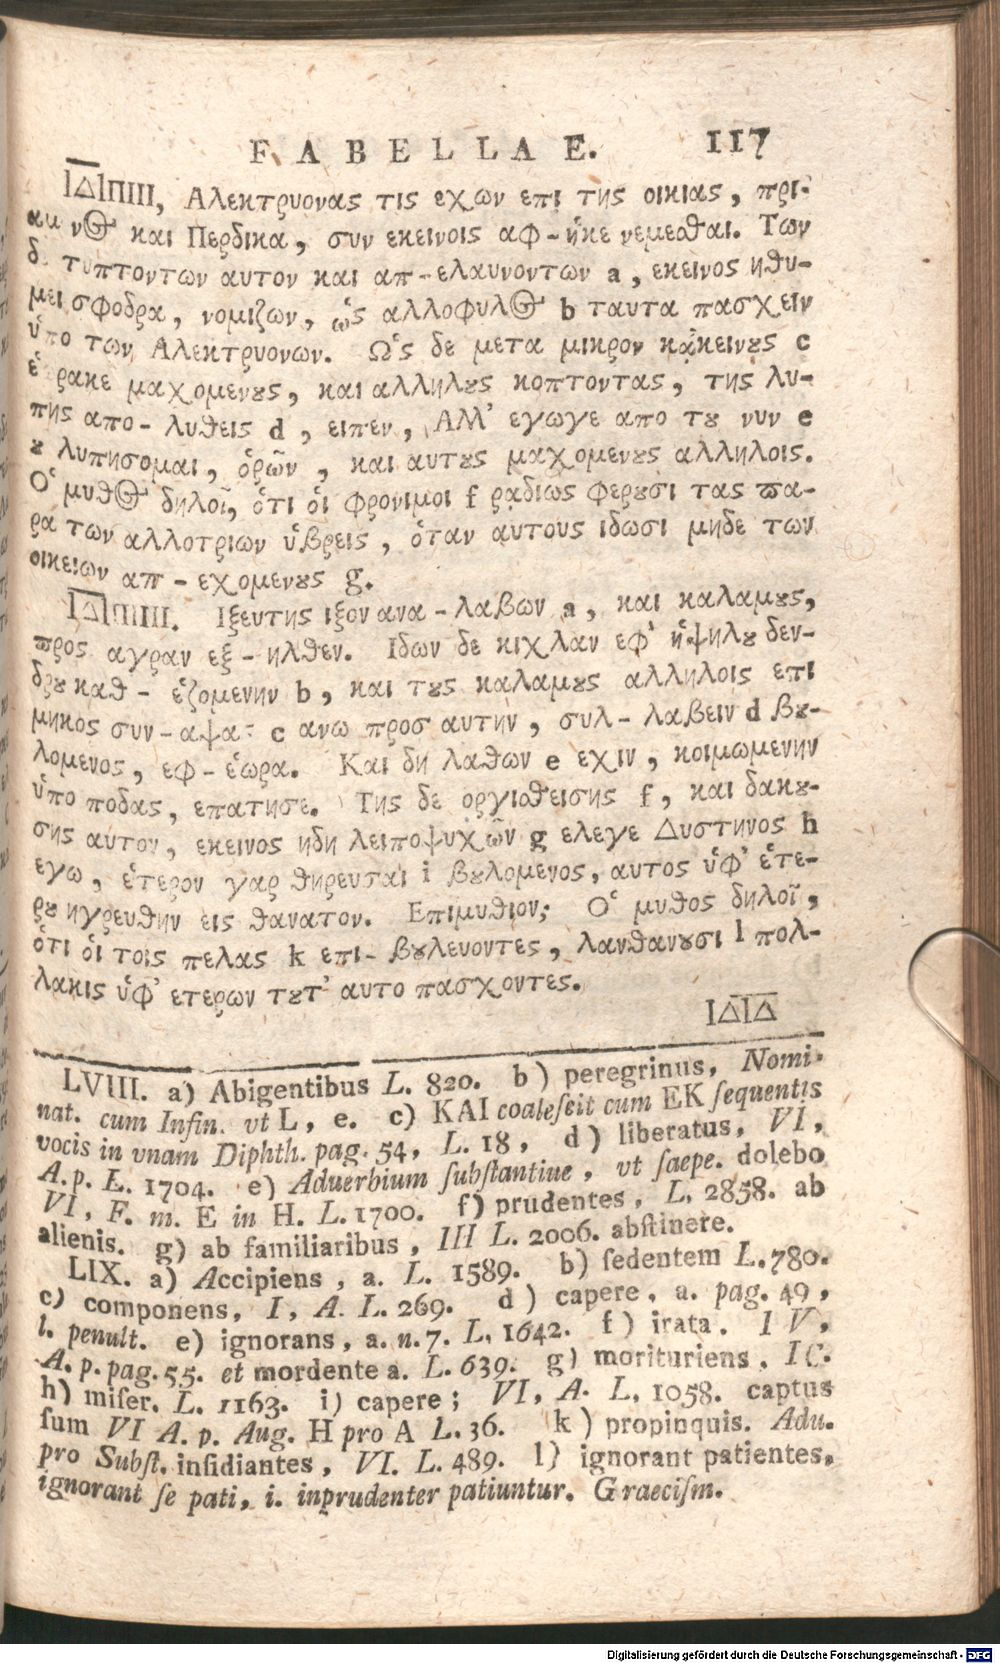 FABELLAE. 117
|Δ|ΠΙΙΙ, Αλεκτρυονας τις εχων επι της οικιας, πρι-
και Περδικα, συν εκεινοις αφ-ἡκε νεμεσθαι. Των
τυπτοντων αυτον και απ-ελαυνοντων a, εκεινος ηθυ-
μει σφοδρα, νομιζων, ὡς αλλοφυλος b ταυτα πασχειν
ὑπο των Αλεκτρυονων. Ὡς δε μετα μικρον κἀκεινȣς c
ἑωρακε μαχομενȣς, και αλληλȣς κοπτοντας, της λυ-
πης απο-λυθεις d, ειπεν, Αλλ' εγωγε απο τȣ νυν e
ȣ λυπησομαι, ὁρῶν, και αυτȣς μαχομενȣς αλληλοις.
Ὁ μυθος δηλοῖ, ὁτι ὁι φρονιμοι f ρᾳδιως φερȣσι τας ϖα-
ρα των αλλοτριων ὑβρεις, ὁταν αυτους ιδωσι μηδε των
οικειων απ-εχομενȣς g.
|Δ|ΠΙΙΙΙ. Ιξευτης ιξον ανα-λαβων a, και καλαμȣς,
προς αγραν εξ-ηλθεν. Ιδων δε κιχλαν εφ' ὑψηλȣ δεν-
δρȣ καθ-ἑζομενην b, και τȣς καλαμȣς αλληλοις επι
μηκος συν-αψας c ανω προς αυτην, συλ-λαβειν d βȣ-
λομενος, εφ-ἑωρα. Και δη λαθων e εχιν, κοιμωμενην
ὑπο ποδας, επατησε. Της δε οργισθεισης f, και δακȣ-
σης αυτον, εκεινος ηδη λειποψυχῶν g ελεγε Δυστηνος h
εγω, ἑτερον γαρ θηρευσαι i βȣλομενος, αυτος ὑφ' ἑτε-
ρȣ ηγρευθην εις θανατον. Επιμυθιον; Ὁ μυθος δηλοῖ,
ὁτι ὁι τοις πελας k επι-βȣλευοντες, λανθανȣσι l πολ-
λακις ὑφ' ετερων τȣτ' αυτο πασχοντες.
|Δ|Δ
LVIII. a) Abigentibus L. 820. b) peregrinus, Nomi-
nat. cum Infin. vt L, e. c) KAI coaleſcit cum EK ſequentis
vocis in vnam Diphth. pag. 54, L. 18, d) liberatus, VI,
A. p. L. 1704. e) Aduerbium ſubſtantiue, vt ſaepe. dolebo
VI, F. m. E in H. L. 1700. f) prudentes, L. 2858. ab
alienis. g) ab familiaribus, III L. 2006. abſtinere.
LIX. a) Accipiens, a. L. 1589. b) ſedentem L. 780.
c) componens, I, A. L. 269. d) capere, a. pag. 49,
l. penult. e) ignorans, a. n. 7. L. 1642. f) irata. IV,
A. p. pag. 55. et mordente a. L. 639. g) morituriens, IC.
h) miſer. L. 1163. i) capere; VI, A. L. 1058. captus
ſum VI A. p. Aug. H pro A L. 36. k) propinquis. Adu.
pro Subſt. inſidiantes, VI. L. 489. l) ignorant patientes,
ignorant ſe pati, i. inprudenter patiuntur. Graeciſm.
Digitalisierung gefördert durch die Deutsche Forschungsgemeinschaft - DFG